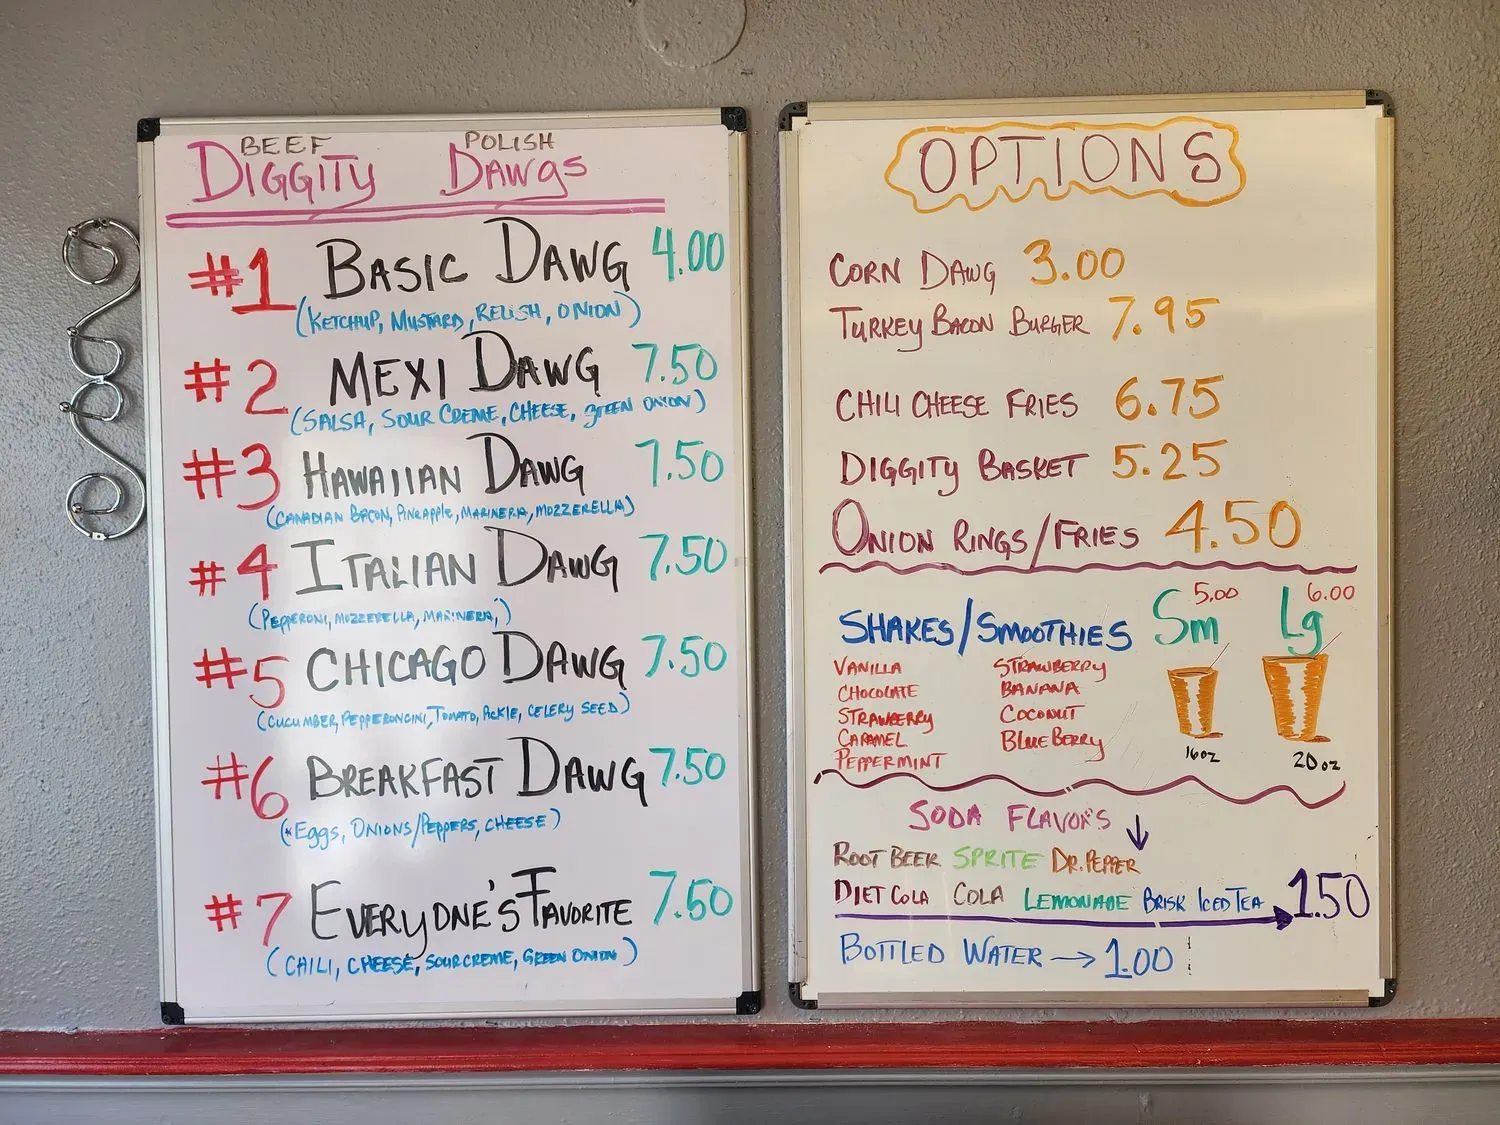 BEEF POLISH
DIGGITY DAWGS
#1 BASIC DAWG 4.00
(KETCHUP, MUSTARD, RELISH, ONION)
#2 MEXI DAWG 7.50
(SALSA, SOUR CREME, CHEESE, green ONION)
#3 HAWAIIAN DAWG 7.50
(CANADIAN BACON, PineApple, MARINERA, MOZZERELLA)
#4 ITALIAN DAWG 7.50
(PEPPERONI, MOZZERELLA, MARINERA,)
#5 CHICAGO DAWG 7.50
(CUCUMBER, PEPPERONCINI, TOMATO, PICKLE, CELERY SEED)
#6 BREAKFAST DAWG 7.50
(*Eggs, ONIONS/PEPPERS, CHEESE)
#7 EVERYONE'S FAVORITE 7.50
(CHILI, CHEESE, SOUR CREME, GREEN ONION)
OPTIONS
CORN DAWG 3.00
TURKEY BACON BURGER 7.95
CHILI CHEESE FRIES 6.75
DIGGITY BASKET 5.25
ONION RINGS/FRIES 4.50
SHAKES/SMOOTHIES Sm 5.00 Lg 6.00
VANILLA STRAWBERRY
CHOCOLATE BANANA
STRAWBERRY COCONUT
CARAMEL BLUEBERRY
PEPPERMINT
16oz 20oz
SODA FLAVORS ↓
ROOT BEER SPRITE DR. PEPPER
DIET COLA COLA LEMONADE BRISK ICED TEA → 1.50
BOTTLED WATER → 1.00